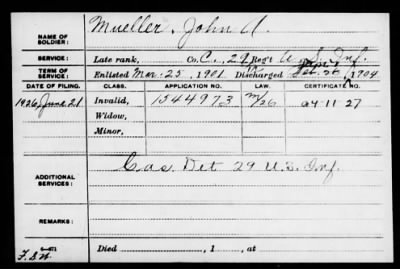 NAME OF SOLDIER: Mueller, John A.
SERVICE: Late rank, Co. C, 29 Reg't U. S. Inf.
TERM OF SERVICE: Enlisted Mar. 25, 1901 Discharged 1904
DATE OF FILING. CLASS. APPLICATION NO. LAW. CERTIFICATE NO.
1926, June 21. Invalid, 1544973
Widow,
Minor,
ADDITIONAL SERVICES: Cas Det 29 U.S. Inf.
REMARKS:
Died , 1 , at